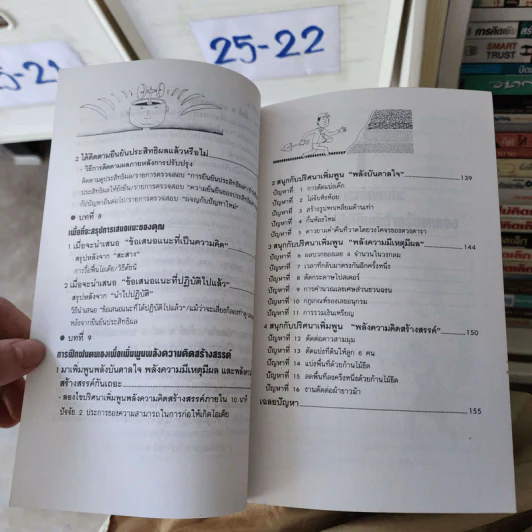 5-21
25-22
การคิดเชิง
SMART
TRUST
2 ได้ติดตามยืนยันประสิทธิผลแล้วหรือไม่
- วิธีการติดตามผลภายหลังการปรับปรุง
ติดตามดูประสิทธิผล/รายการตรวจสอบ "การยืนยันประสิทธิผล
ประสิทธิผลให้ยั่งยืน/รายการตรวจสอบ "ความยั่งยืนของประสิทธิผล
กับปัญหาอื่นต่อไป/รายการตรวจสอบ "ผจญกับปัญหาใหม่"
● บทที่ 8
เพื่อที่จะสรุปการเสนอแนะของคุณ
1 เมื่อจะนำเสนอ "ข้อเสนอแนะที่เป็นความคิด"
สรุปหลังจาก "สะสาง"
การรื้อฟื้นไอเดีย/วิธีดัชนี
2 เมื่อจะนำเสนอ "ข้อเสนอแนะที่ปฏิบัติไปแล้ว"
สรุปหลังจาก "นำไปปฏิบัติ"
วิธีนำเสนอ "ข้อเสนอแนะที่ได้ปฏิบัติไปแล้ว"/แม้ว่าจะเสียก็ลอง
หลังจากยืนยันประสิทธิผล
● บทที่ 9
การฝึกฝนตนเองเพื่อเพิ่มพูนพลังความคิดสร้างสรรค์
1 มาเพิ่มพูนพลังบันดาลใจ พลังความมีเหตุผล และพลัง
สร้างสรรค์กันเถอะ
- ลองไขปริศนาเพิ่มพูนพลังความคิดสร้างสรรค์ภายใน 10 นาที
ปัจจัย 2 ประการของความสามารถในการก่อให้เกิดไอเดีย
2 สนุกกับปริศนาเพิ่มพูน "พลังบันดาลใจ" 139
ปัญหาที่ 1 การตัดแบ่งเค้ก
ปัญหาที่ 2 ไล่จับหิ่งห้อย
ปัญหาที่ 3 สร้างรูปหกเหลี่ยมด้านเท่า
ปัญหาที่ 4 ที่นี่อะไร
ปัญหาที่ 5 ดาวยามค่ำคืนที่วาดโดยวงโคจรของดวงดารา
3 สนุกกับปริศนาเพิ่มพูน "พลังความมีเหตุมีผล" 144
ปัญหาที่ 6 ผลบวกของเลข 4 จำนวนในวงกลม
ปัญหาที่ 7 เวลาที่กลับมาตรงกันอีกครั้งหนึ่ง
ปัญหาที่ 8 ตัดกระดาษโปสเตอร์
ปัญหาที่ 9 การคำนวณเลขเศษส่วนชวนฉงน
ปัญหาที่ 10 กฎเกณฑ์ของเลขอนุกรม
ปัญหาที่ 11 การรวมเงินเหรียญ
4 สนุกกับปริศนาเพิ่มพูน "พลังความคิดสร้างสรรค์" 150
ปัญหาที่ 12 ตัดต่อดาวสามมุม
ปัญหาที่ 13 ตัดแบ่งที่ดินให้ลูก 6 คน
ปัญหาที่ 14 แบ่งพื้นที่ด้วยก้านไม้ขีด
ปัญหาที่ 15 ลดพื้นที่ลงครึ่งหนึ่งด้วยก้านไม้ขีด
ปัญหาที่ 16 งานตัดต่อผ้ายาวม้า
เฉลยปัญหา 155